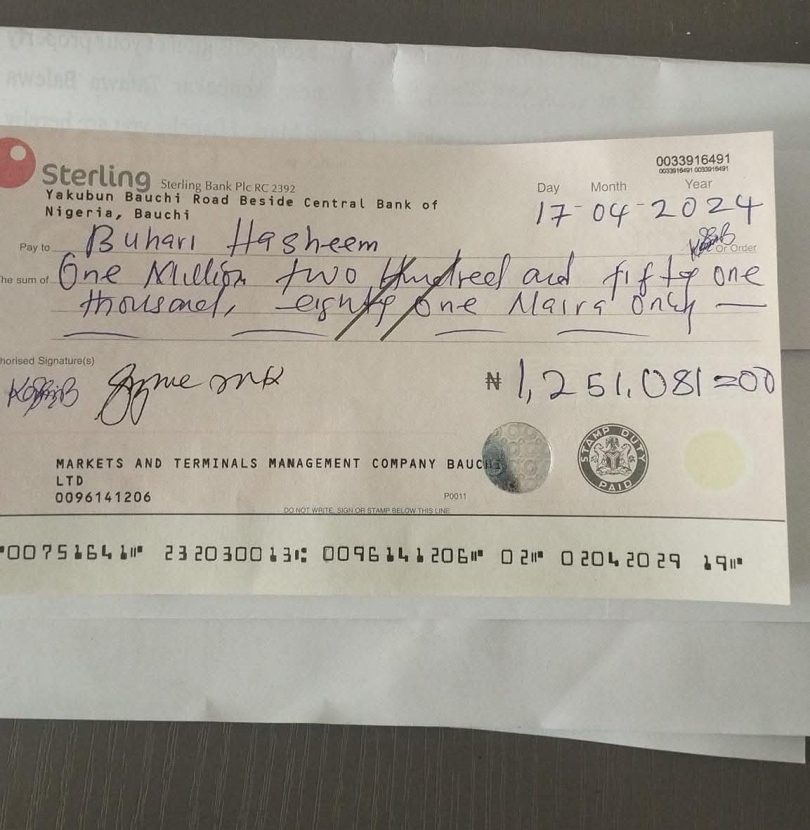 0033916491
0033916491 0033916491
Sterling Sterling Bank Plc RC 2392
Yakubun Bauchi Road Beside Central Bank of
Nigeria, Bauchi
Day Month Year
17-04-2024
Pay to Buhari Hasheem or Order
The sum of One Million two hundred and fifty one
thousand, eighty one Naira only
horised Signature(s)
₦ 1,251,081=00
MARKETS AND TERMINALS MANAGEMENT COMPANY BAUCHI
LTD
0096141206
P0011
STAMP DUTY
PAID
DO NOT WRITE, SIGN OR STAMP BELOW THIS LINE
00751641 232030013 0096141206 02 02042029 19